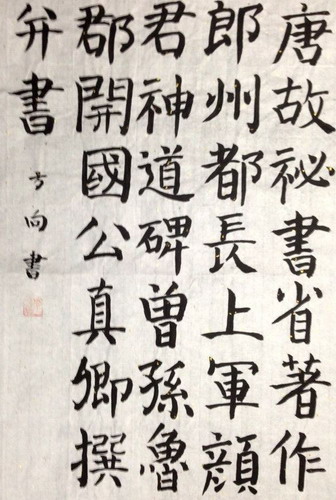 唐故祕書省著作
郎州都長上軍顔
君神道碑曽孫魯
郡開國公真卿撰
弁書
方向書